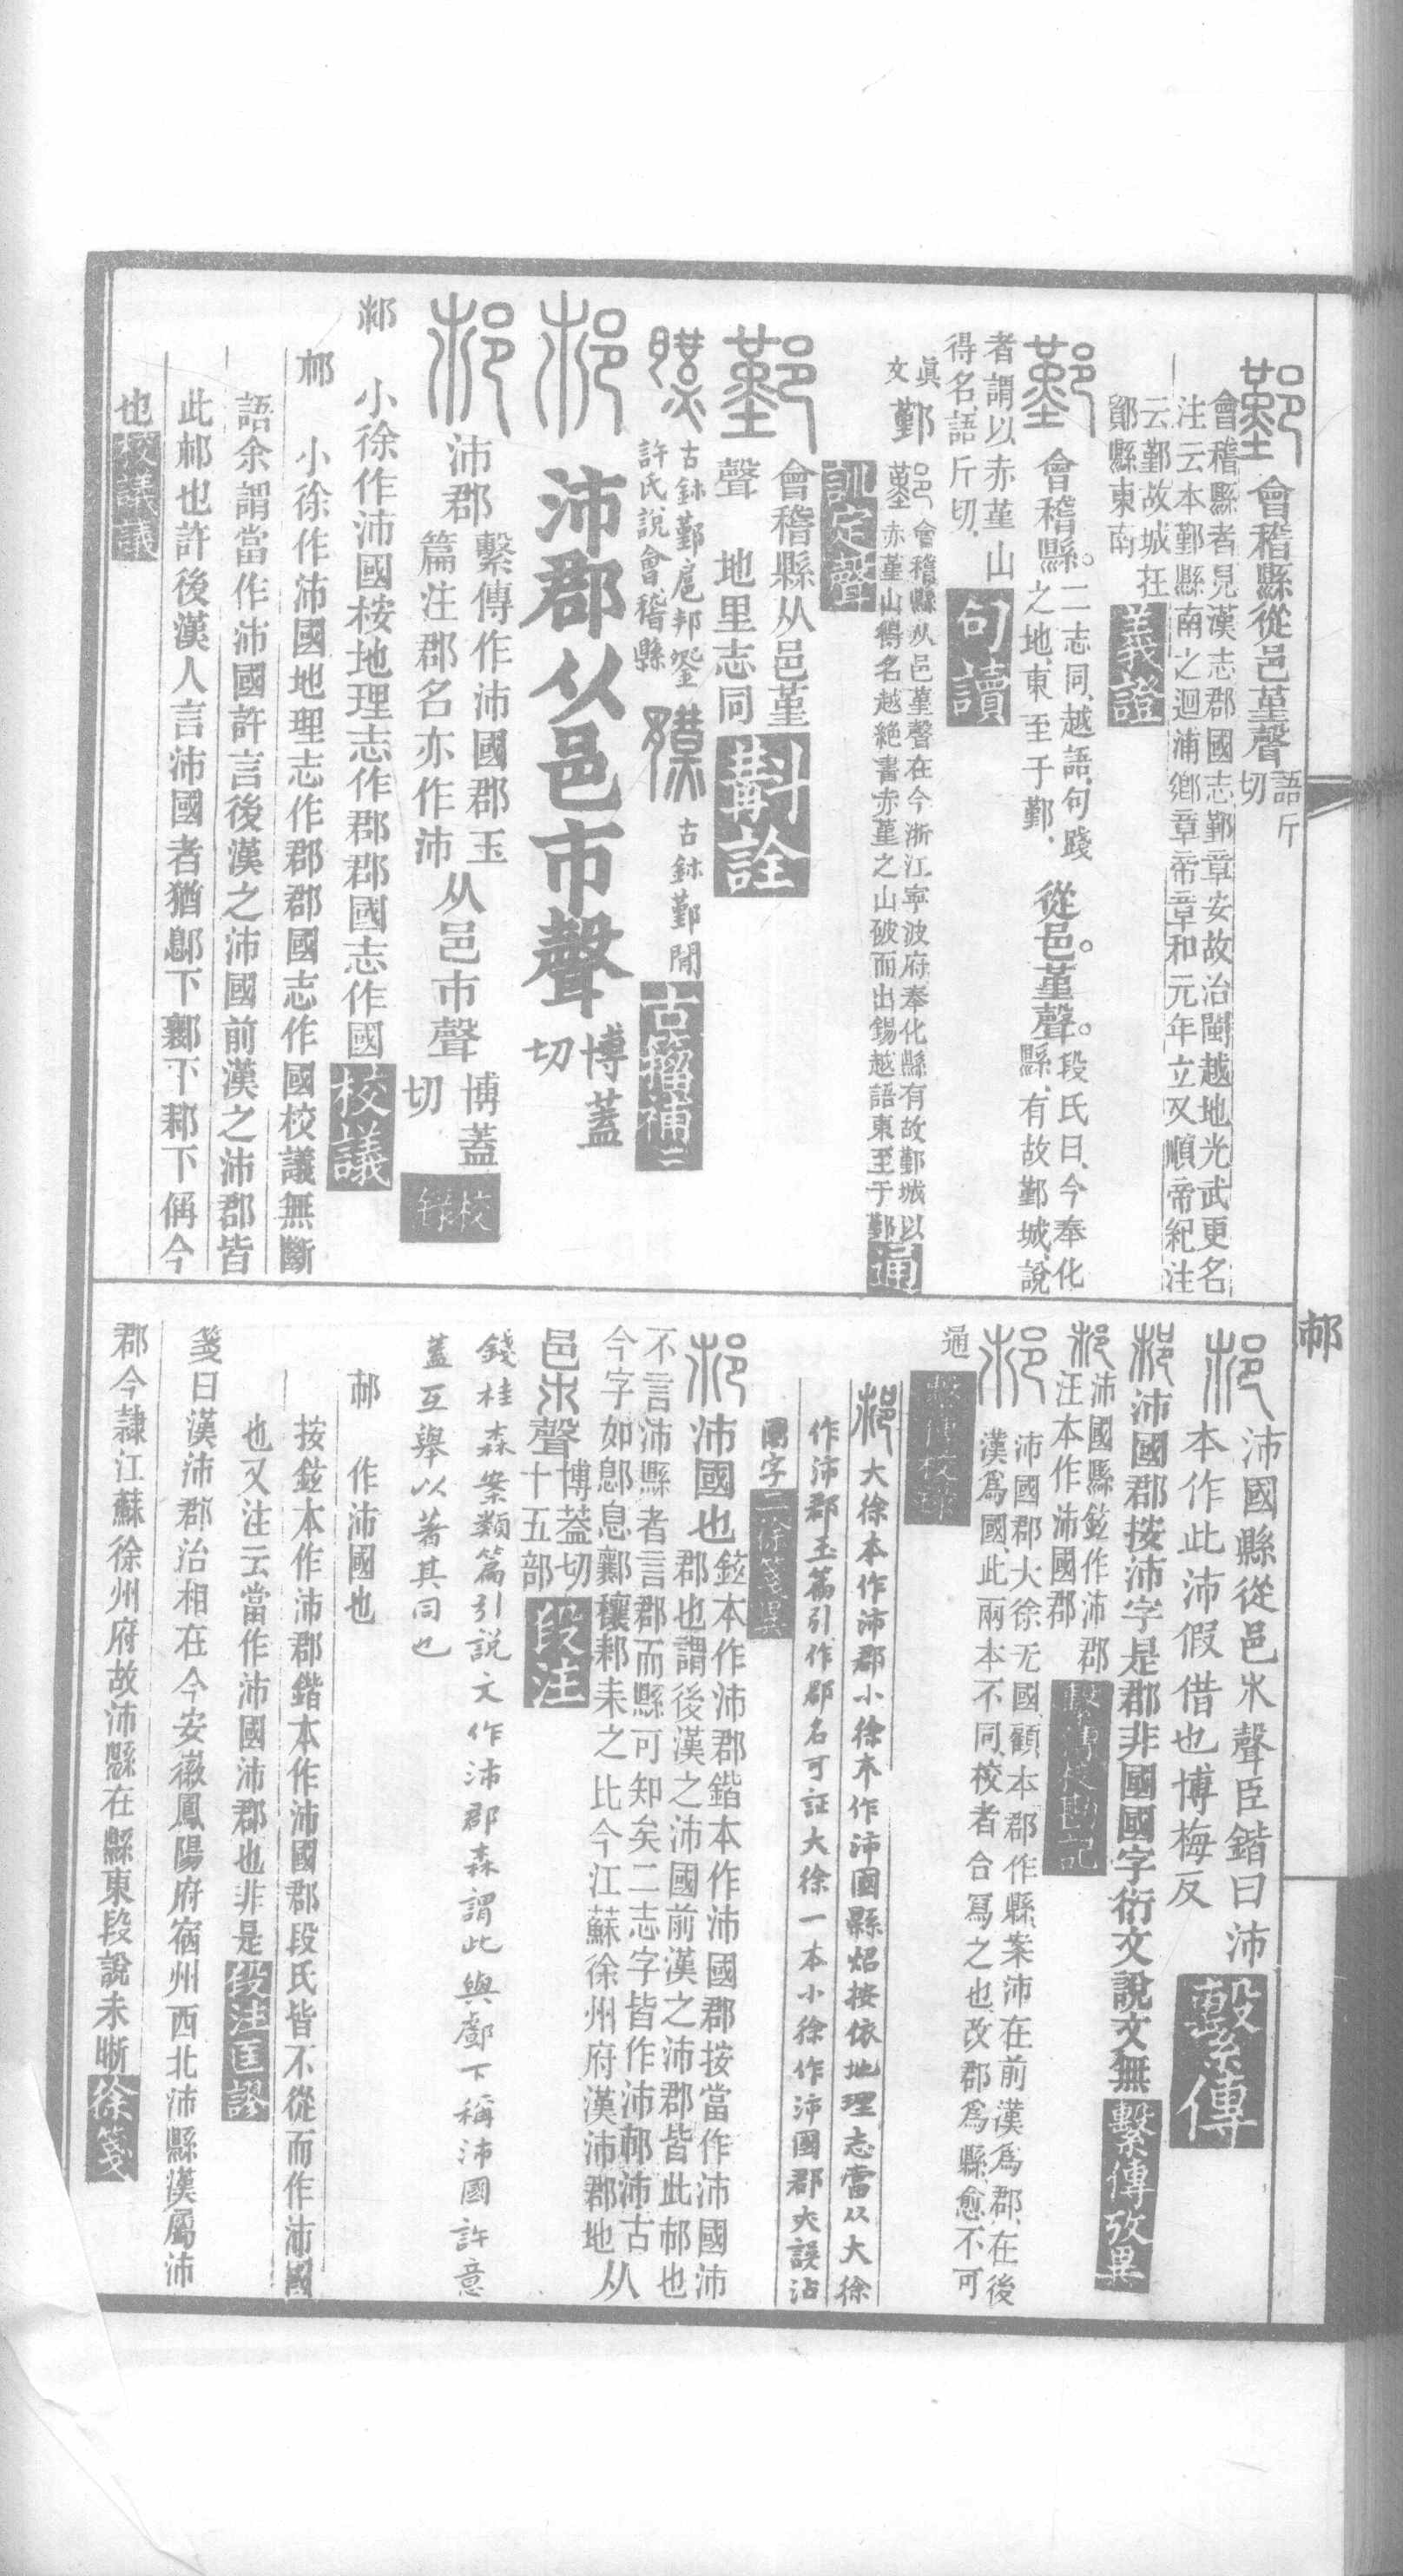 鄞會稽縣從邑堇聲語斤切
會稽縣者見漢志郡國志鄞章安故治閩越地光武更名
注云本鄞縣南之迴浦鄉章帝章和元年立又順帝紀注
云鄞故城在
鄮縣東南義證
鄞會稽縣。二志同、越語、句踐之地、東至于鄞、從邑。堇聲。段氏曰、今奉化縣、有故鄞城、說
者謂以赤堇山
得名、語斤切、句讀
真文鄞會稽縣从邑堇聲在今浙江寧波府奉化縣有故鄞城以
赤堇山得名越絕書赤堇之山破而出錫越語東至于鄞通
訓定聲
鄞會稽縣从邑堇
聲 地里志同斠詮
古鉥鄞
許氏說會稽縣
古鉥鄞閒古籀補二
沛郡从邑巿聲博蓋切
沛郡繫傳作沛國郡玉篇注郡名亦作沛从邑巿聲博蓋切校錄
邟 小徐作沛國按地理志作郡郡國志作國校議
邟 小徐作沛國地理志作郡郡國志作國校議無斷
語余謂當作沛國許言後漢之沛國前漢之沛郡皆
此邟也許後漢人言沛國者猶鄎下鄴下鄀下偁今
也校議議
沛國縣從邑巿聲臣鍇曰沛
本作此沛假借也博梅反繫傳
沛國郡按沛字是郡非國國字衍文說文無繫傳攷異
沛國縣鉉作沛郡
汪本作沛國郡繫傳校勘記
沛國郡大徐无國、顧本郡作縣、案沛在前漢爲郡、在後
漢爲國此兩本不同、校者合寫之也、改郡爲縣、愈不可
通繫傳校錄
大徐本作沛郡小徐本作沛國縣炤按依地理志當从大徐
作沛郡玉篇引作郡名可証大徐一本小徐作沛國郡大誤沾
國字二徐箋異
沛國也鉉本作沛郡鍇本作沛國郡按當作沛國沛
郡也謂後漢之沛國前漢之沛郡皆此邟也
不言沛縣者言郡而縣可知矣二志字皆作沛邟沛古
今字如鄎息鄴穰邾耒之比今江蘇徐州府漢沛郡地从
邑巿聲博蓋切十五部段注
錢桂森案類篇引說文作沛郡森謂此與鄺下稱沛國許意
蓋互舉以著其同也
邟 作沛國也
按鉉本作沛郡鍇本作沛國郡段氏皆不從而作沛國
也又注云當作沛國沛郡也非是段注匡謬
箋曰漢沛郡治相在今安徽鳳陽府宿州西北沛縣漢屬沛
郡今隸江蘇徐州府故沛縣在縣東段說未晰徐箋